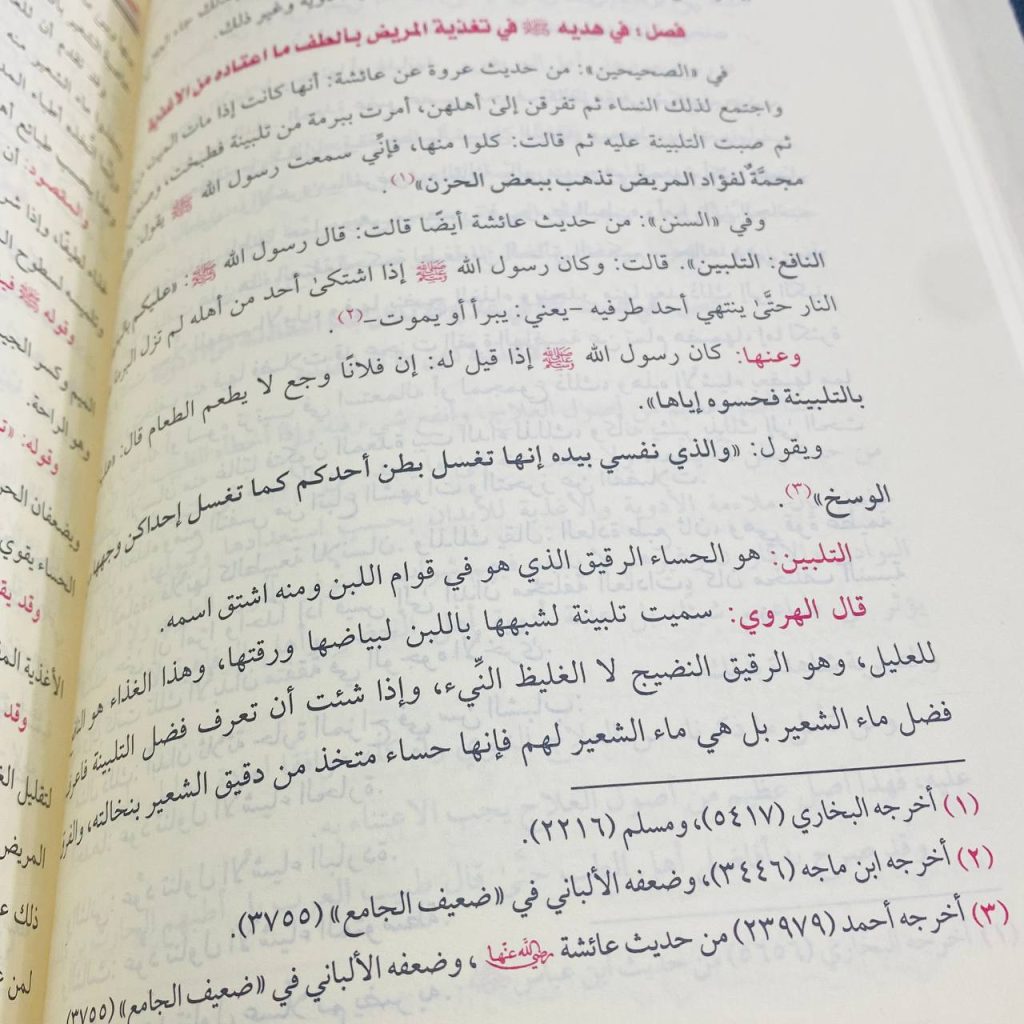 فصل: في هديه ﷺ في تغذية المريض بألطف ما اعتاده من الأغذية
في «الصحيحين»: من حديث عروة عن عائشة: أنها كانت إذا مات الميت
واجتمع لذلك النساء ثم تفرقن إلىٰ أهلهن، أمرت ببرمة من تلبينة فطبخت،
ثم صبت التلبينة عليه ثم قالت: كلوا منها، فإنِّي سمعت رسول الله ﷺ يقول:
مجمَّةٌ لفؤاد المريض تذهب ببعض الحزن»(١).
وفي «السنن»: من حديث عائشة أيضًا قالت: قال رسول الله ﷺ: «عليكم
النافع: التلبين». قالت: وكان رسول الله ﷺ إذا اشتكىٰ أحد من أهله لم تزل البرمة
النار حتَّىٰ ينتهي أحد طرفيه -يعني: يبرأ أو يموت-(٢).
وعنها: كان رسول الله ﷺ إذا قيل له: إن فلانًا وجع لا يطعم الطعام قال:
بالتلبينة فحسوه إياها».
ويقول: «والذي نفسي بيده إنها تغسل بطن أحدكم كما تغسل إحداكن وجهها
الوسخ»(٣).
التلبين: هو الحساء الرقيق الذي هو في قوام اللبن ومنه اشتق اسمه.
قال الهروي: سميت تلبينة لشبهها باللبن لبياضها ورقتها، وهذا الغذاء هو
للعليل، وهو الرقيق النضيج لا الغليظ النِّيء، وإذا شئت أن تعرف فضل التلبينة
فضل ماء الشعير بل هي ماء الشعير لهم فإنها حساء متخذ من دقيق الشعير بنخالته،
(١) أخرجه البخاري (٥٤١٧)، ومسلم (٢٢١٦).
(٢) أخرجه ابن ماجه (٣٤٤٦)، وضعفه الألباني في «ضعيف الجامع» (٣٧٥٥).
(٣) أخرجه أحمد (٢٣٩٧٩) من حديث عائشة رضي الله عنها، وضعفه الألباني في «ضعيف الجامع» (٣٧٥٥)